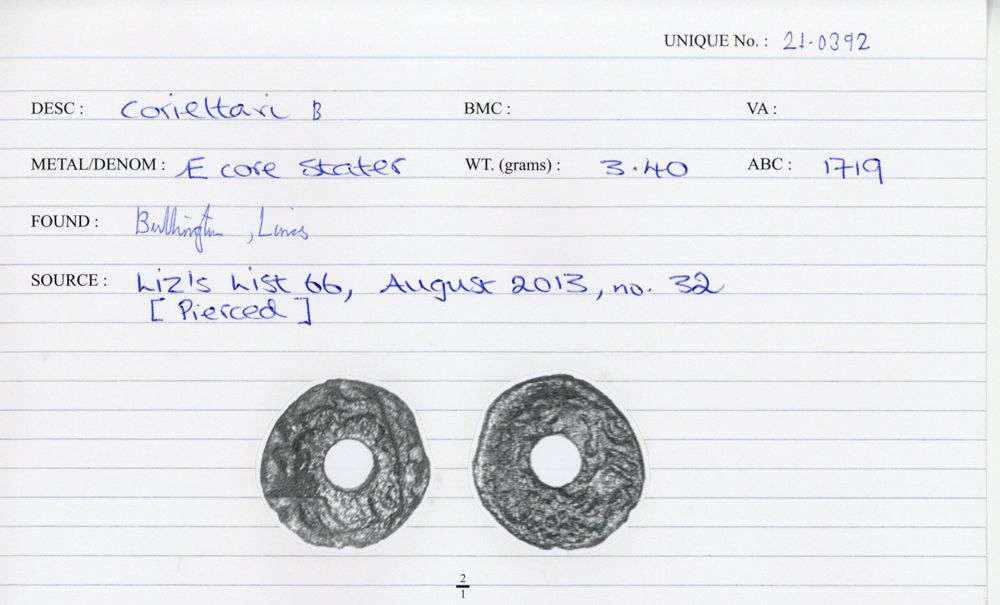 UNIQUE No. : 21.0392
DESC : Corieltavi B BMC : VA :
METAL/DENOM : Æ core stater WT. (grams) : 3.40 ABC : 1719
FOUND : Bullington, Lincs
SOURCE : Liz's List 66, August 2013, no. 32
[Pierced]
2
1